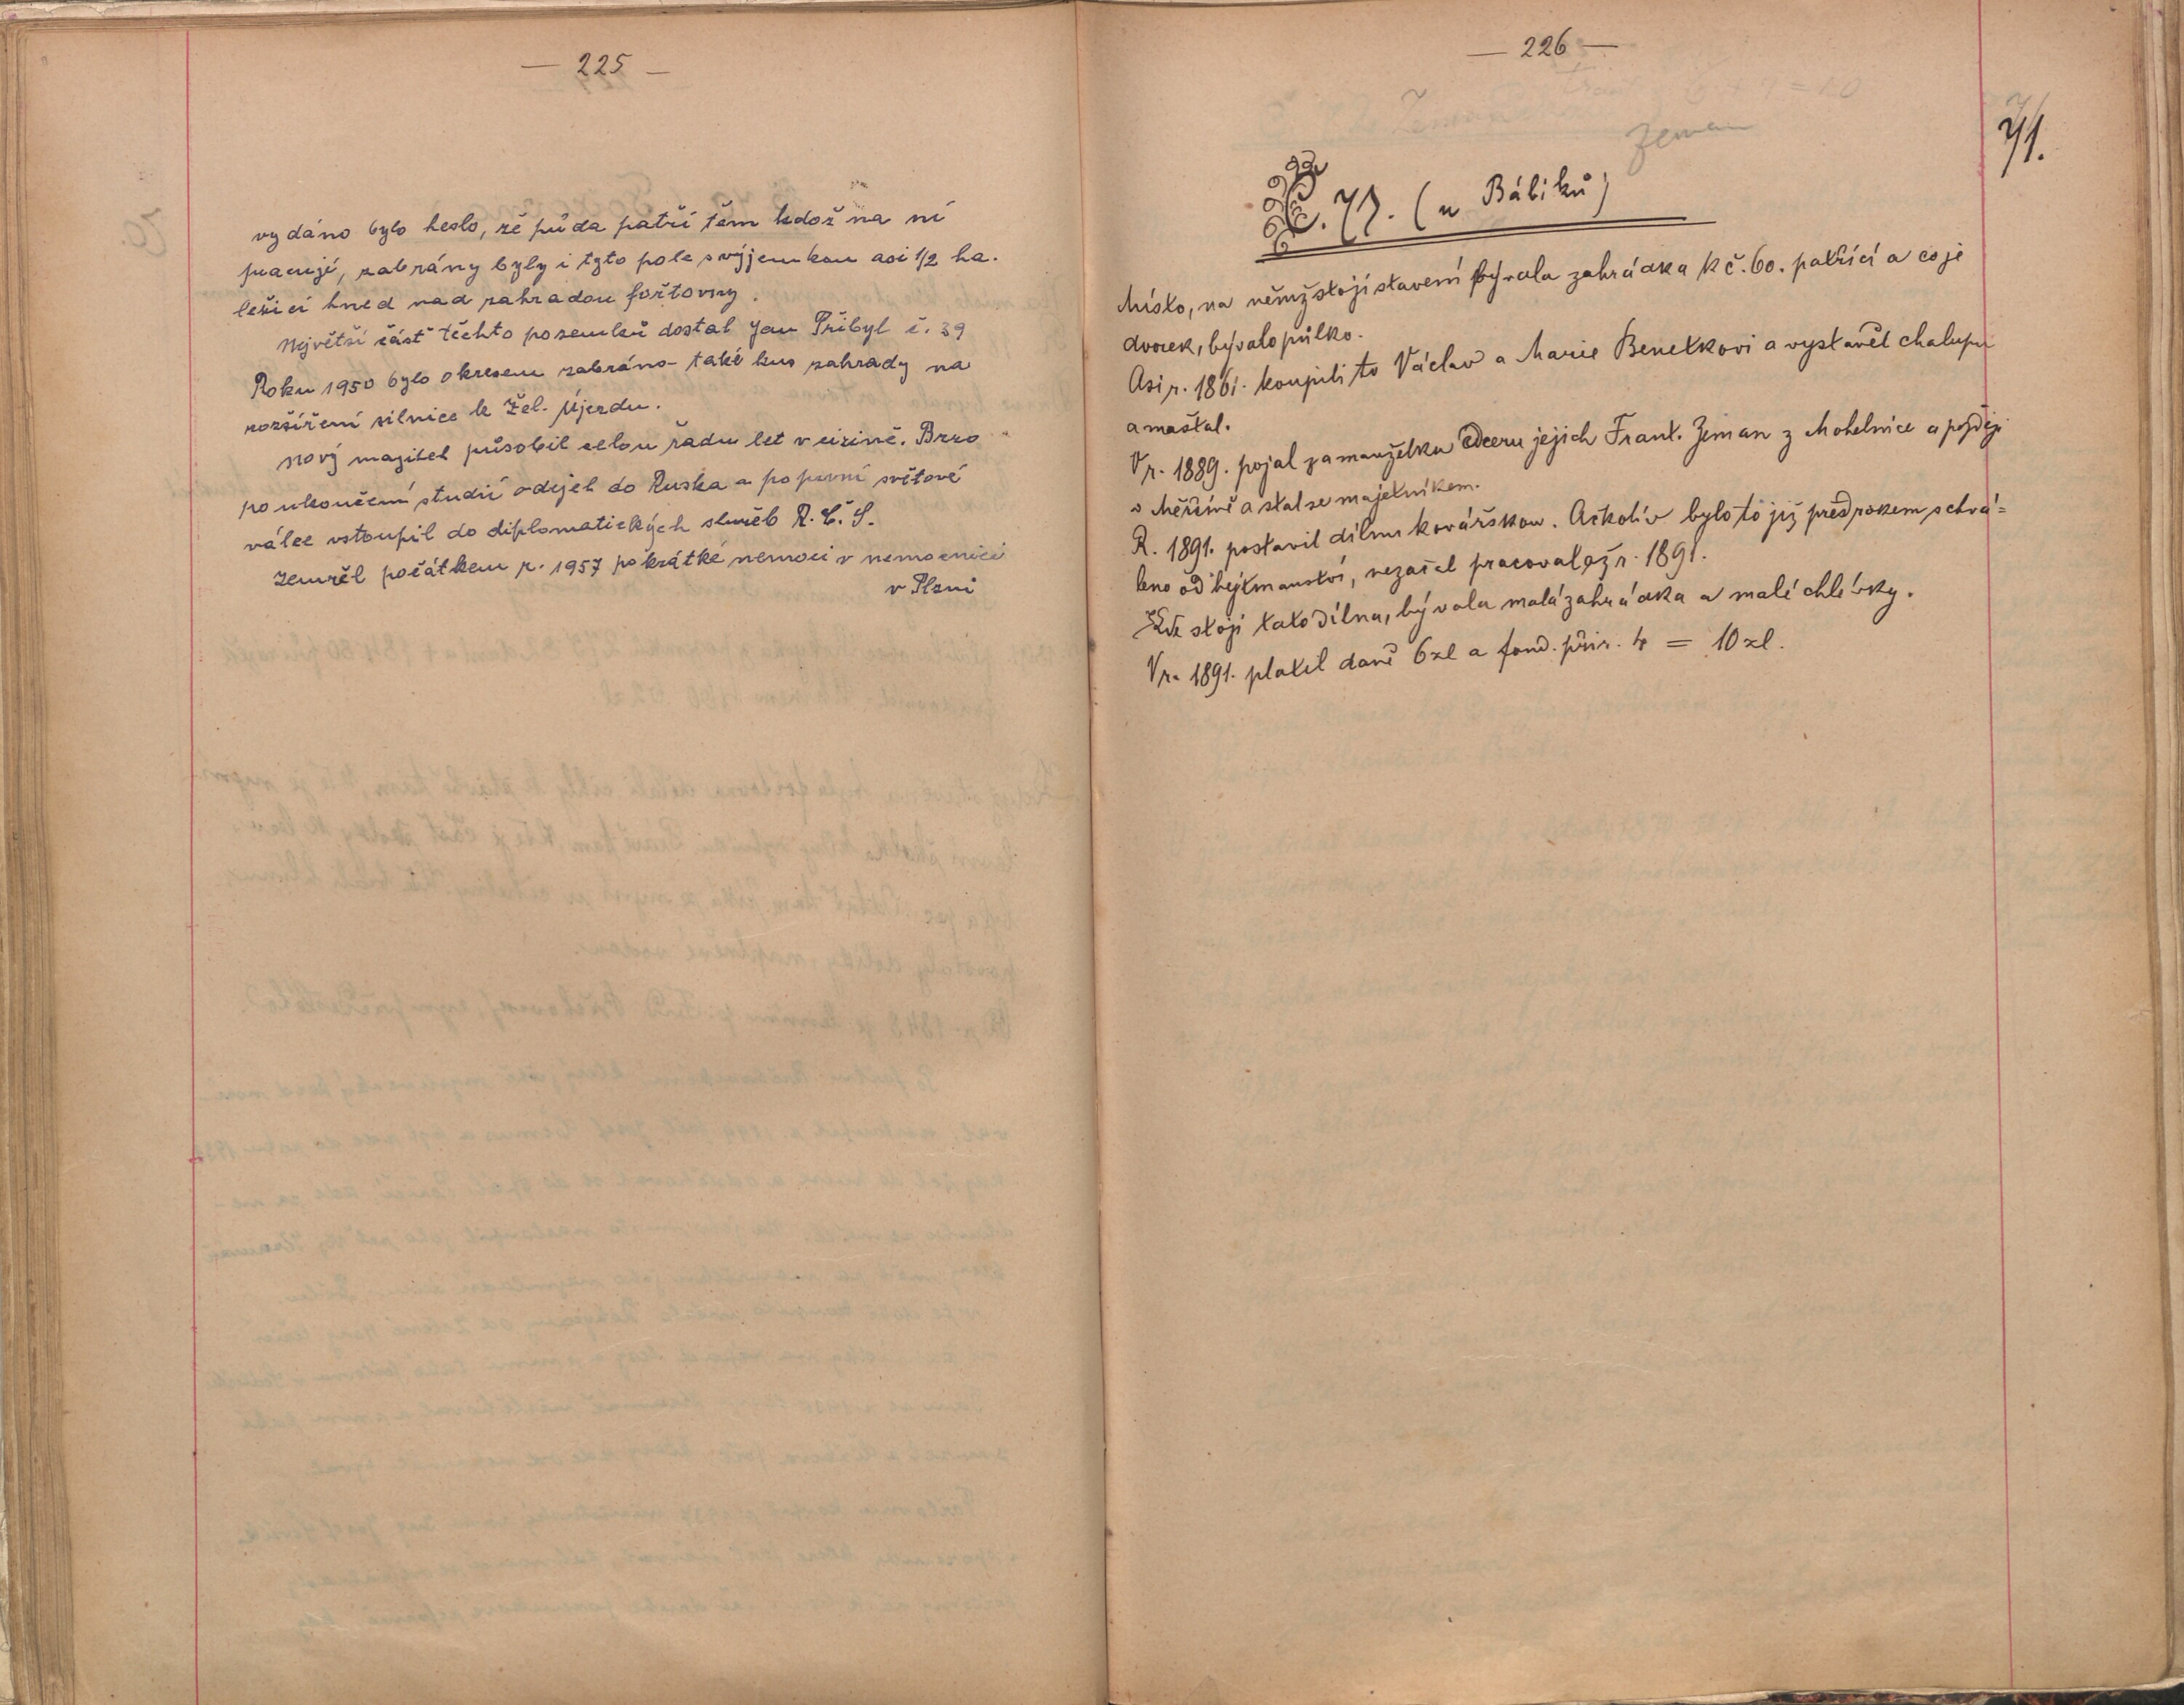 — 225 —
vydáno bylo heslo, že půda patří těm kdož na ní
pracují, zabrány byly i tyto pole s výjemkou asi 1/2 ha.
ležící hned nad zahradou foštovny.
Největší část těchto pozemků dostal Jan Přibyl č. 39
Roku 1950 bylo okresem zabráno také kus zahrady na
rozšíření silnice k žel. újezdu.
Nový majitel působil celou řadu let v cizině. Brzo
po ukončení studií odejel do Ruska a po první světové
válce vstoupil do diplomatických služeb R. Č. S.
Zemřel počátkem r. 1957 po krátké nemoci v nemocnici
v Plzni
— 226 —
71.
Zeman
Č. 71. (u Bábiků)
Místo, na němž stojí stavení bývala zahrádka k č. 60. patřící a co je
dvorek, bývalo půlko.
Asi r. 1861. koupili to Václav a Marie Benetkovi a vystavěl chalupu
a maštal.
V r. 1889. pojal za manželku dceru jejich Frant. Zeman z Mohelnice a později
v Měčíně a stal se majetníkem.
R. 1891. postavil dílnu kovářskou. Ačkoliv bylo to již před rokem schvá=
leno od hejtmanství, nezačal pracoval až r. 1891.
Kde stojí tato dílna, bývala malá zahrádka a malé chlévky.
V r. 1891. platil daně 6 zl a fond. přir. 4 = 10 zl.